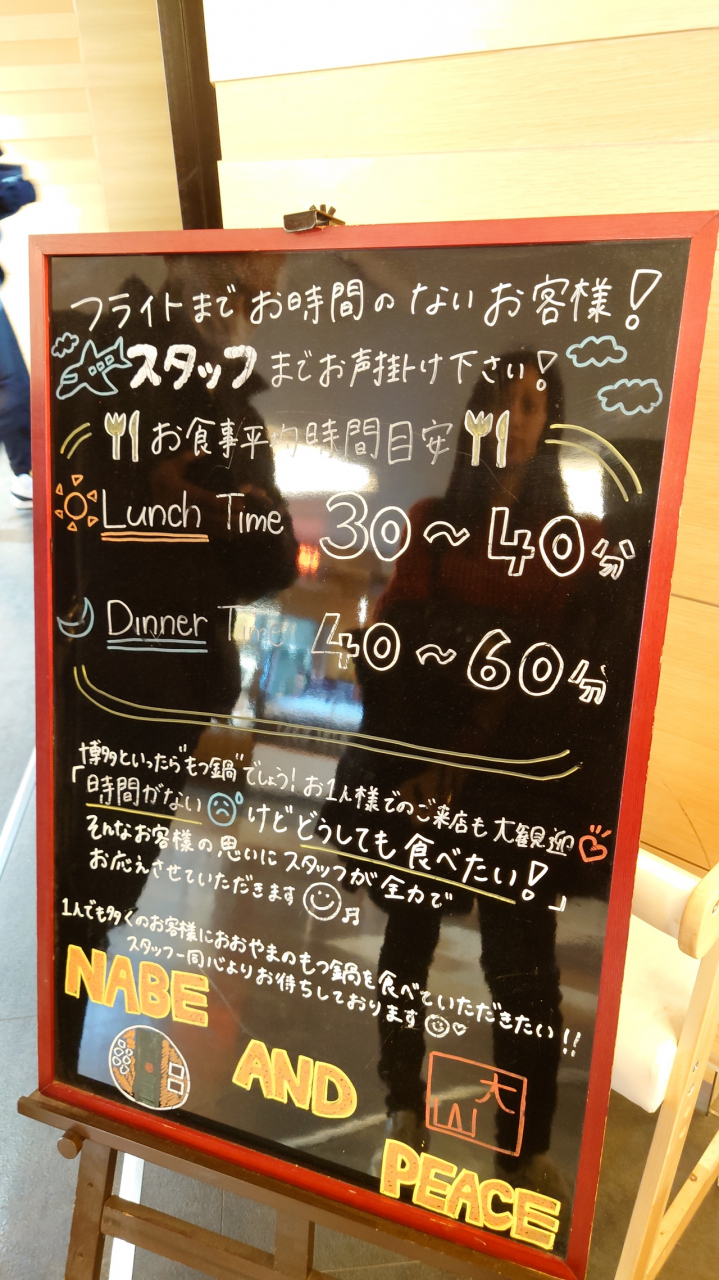 フライトまでお時間のないお客様!
スタッフまでお声掛け下さい!
お食事平均時間目安
Lunch Time 30〜40分
Dinner Time 40〜60分
博多といったら"もつ鍋"でしょう!お1人様でのご来店も大歓迎
「時間がないけどどうしても食べたい!」
そんなお客様の思いにスタッフが全力で
お応えさせていただきます
1人でも多くのお客様におおやまのもつ鍋を食べていただきたい!!
スタッフ一同心よりお待ちしております
NABE
AND
大山
PEACE